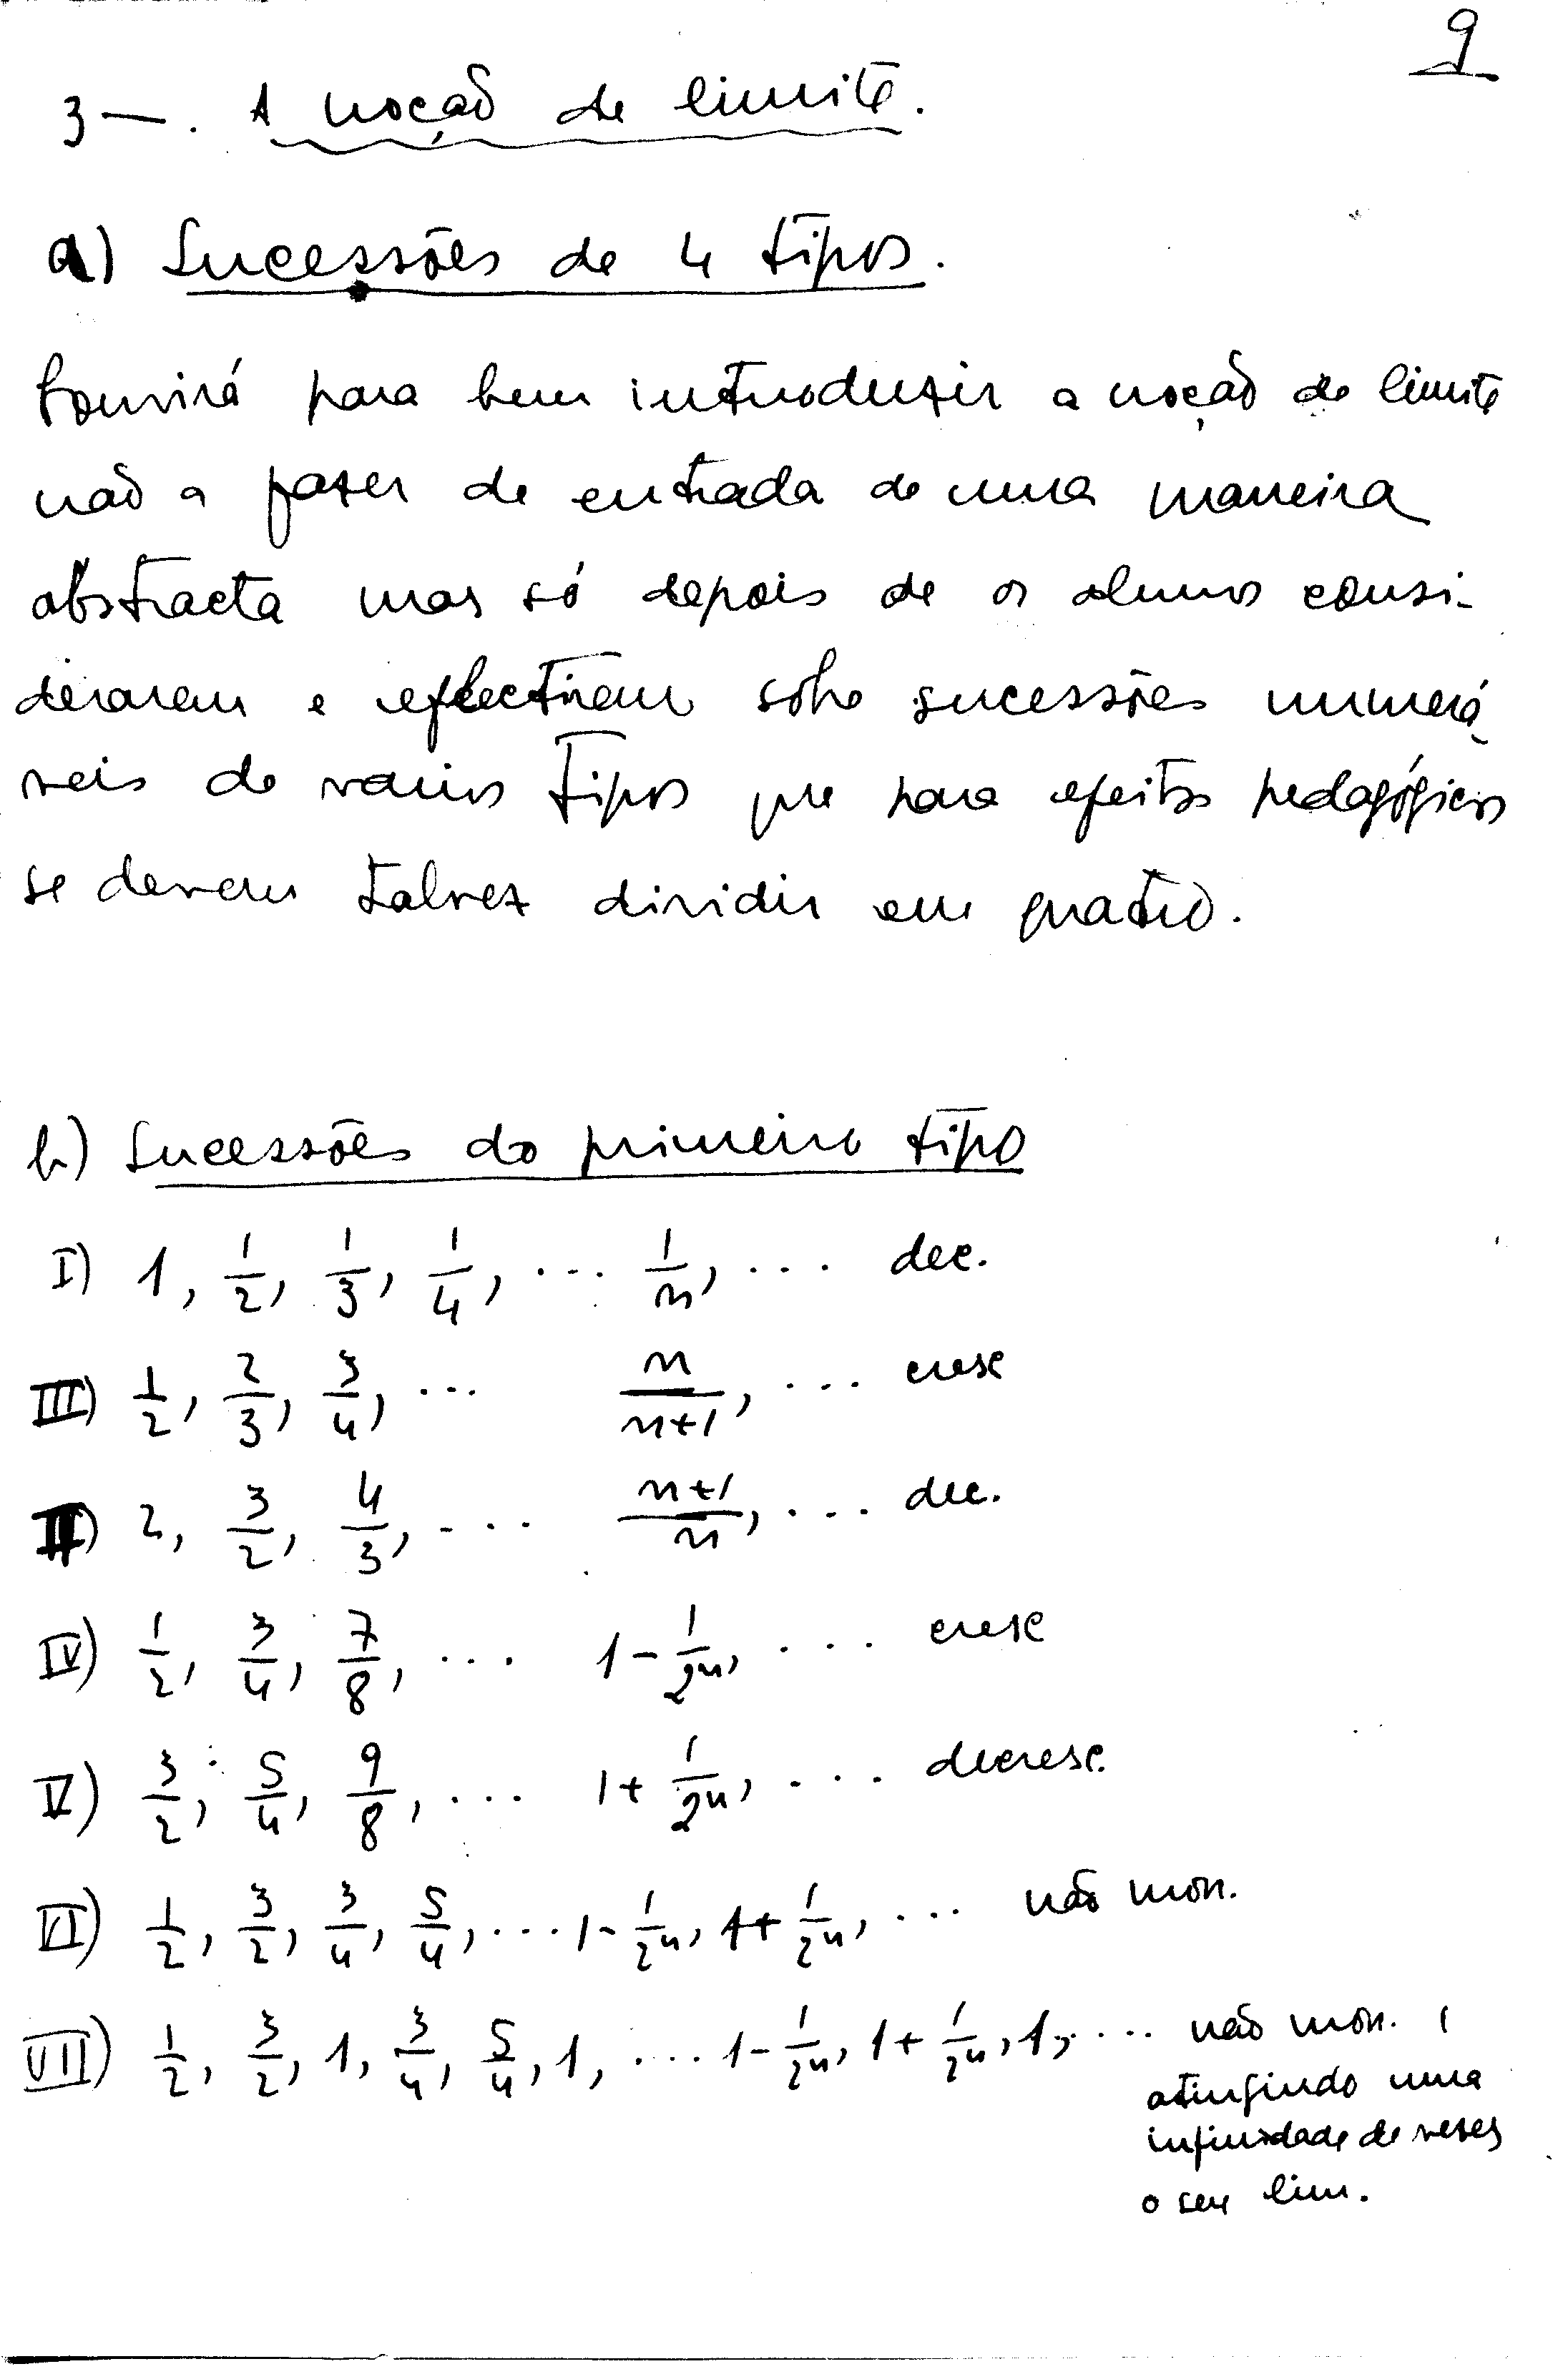 9
3 —. A noção de limite.
a) Sucessões de 4 tipos.
Convirá para bem introduzir a noção de limite
não a fazer de entrada de uma maneira
abstracta mas só depois de os alunos consi-
derarem e reflectirem sobre sucessões numerá
veis de varios tipos que para efeitos pedagógicos
se devem talvez dividir em quatro.
b) Sucessões do primeiro tipo
I) 1, 1/2, 1/3, 1/4, ... 1/n, ... dec.
III) 1/2, 2/3, 3/4, ... n/(n+1), ... cresc
II) 2, 3/2, 4/3, ... (n+1)/n, ... dec.
IV) 1/2, 3/4, 7/8, ... 1 - 1/2ⁿ, ... cresc
V) 3/2, 5/4, 9/8, ... 1 + 1/2ⁿ, ... decresc.
VI) 1/2, 3/2, 3/4, 5/4, ... 1 - 1/2ⁿ, 1 + 1/2ⁿ, ... não mon.
VII) 1/2, 3/2, 1, 3/4, 5/4, 1, ... 1 - 1/2ⁿ, 1 + 1/2ⁿ, 1, ... não mon. (
atingindo uma
infinidade de vezes
o seu lim.